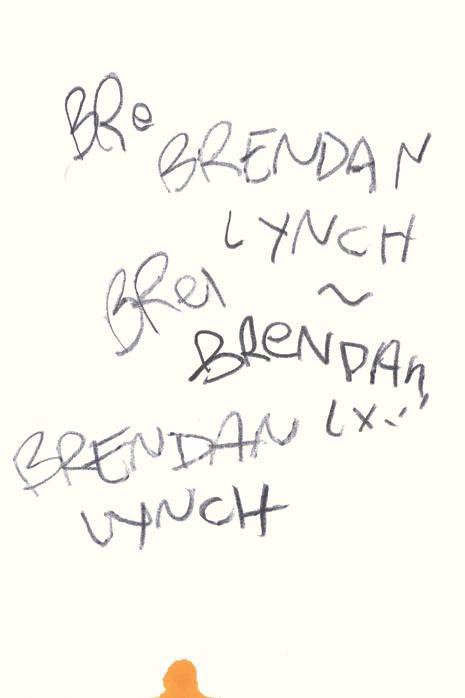 BRe
BRENDAN
LYNCH
BRen
~
BRenDAn
BRENDAN
LYNCH